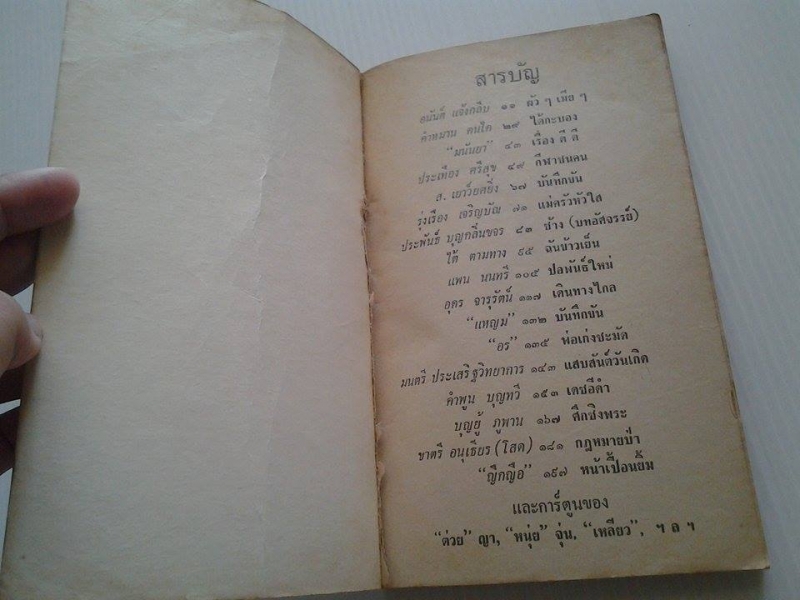 สารบัญ
อนันต์ แจ้งกลีบ ๑๑ ผัว ๆ เมีย ๆ
คำหมาน คนไค ๒๙ ไต้กะบอง
“มนันยา” ๔๓ เรื่อง ดี ดี
ประเทือง ศรีสุข ๔๙ กีฬาชนคน
ส. เยาว์ยคยิ่ง ๖๗ บันทึกขัน
รุ่งเรือง เจริญบัณ ๗๑ แม่ครัวหัวใส
ประพันธ์ บุญกลิ่นขจร ๘๓ ช้าง (บทอัศจรรย์)
ใต้ ตามทาง ๙๕ ฉันข้าวเย็น
แพน นนทรี ๑๐๕ ปลพันธ์ใหม่
อุดร จารุรัตน์ ๑๑๗ เดินทางไกล
“แหญม” ๑๓๒ บันทึกขัน
“อร” ๑๓๕ พ่อเก่งชะมัด
มนตรี ประเสริฐวิทยาการ ๑๔๓ แสบสันต์วันเกิด
คำพูน บุญทวี ๑๕๓ เตชอีดำ
บุญยู้ ภูพาน ๑๖๗ ศึกชิงพระ
ชาตรี อนุเธียร (โสด) ๑๘๑ กฎหมายป่า
“ญึกญือ” ๑๙๗ หน้าเปื้อนยิ้ม
และการ์ตูนของ
“ต่วย” ญา, “หนุ่ย” จุ่น, “เหลียว”, ฯ ล ฯ